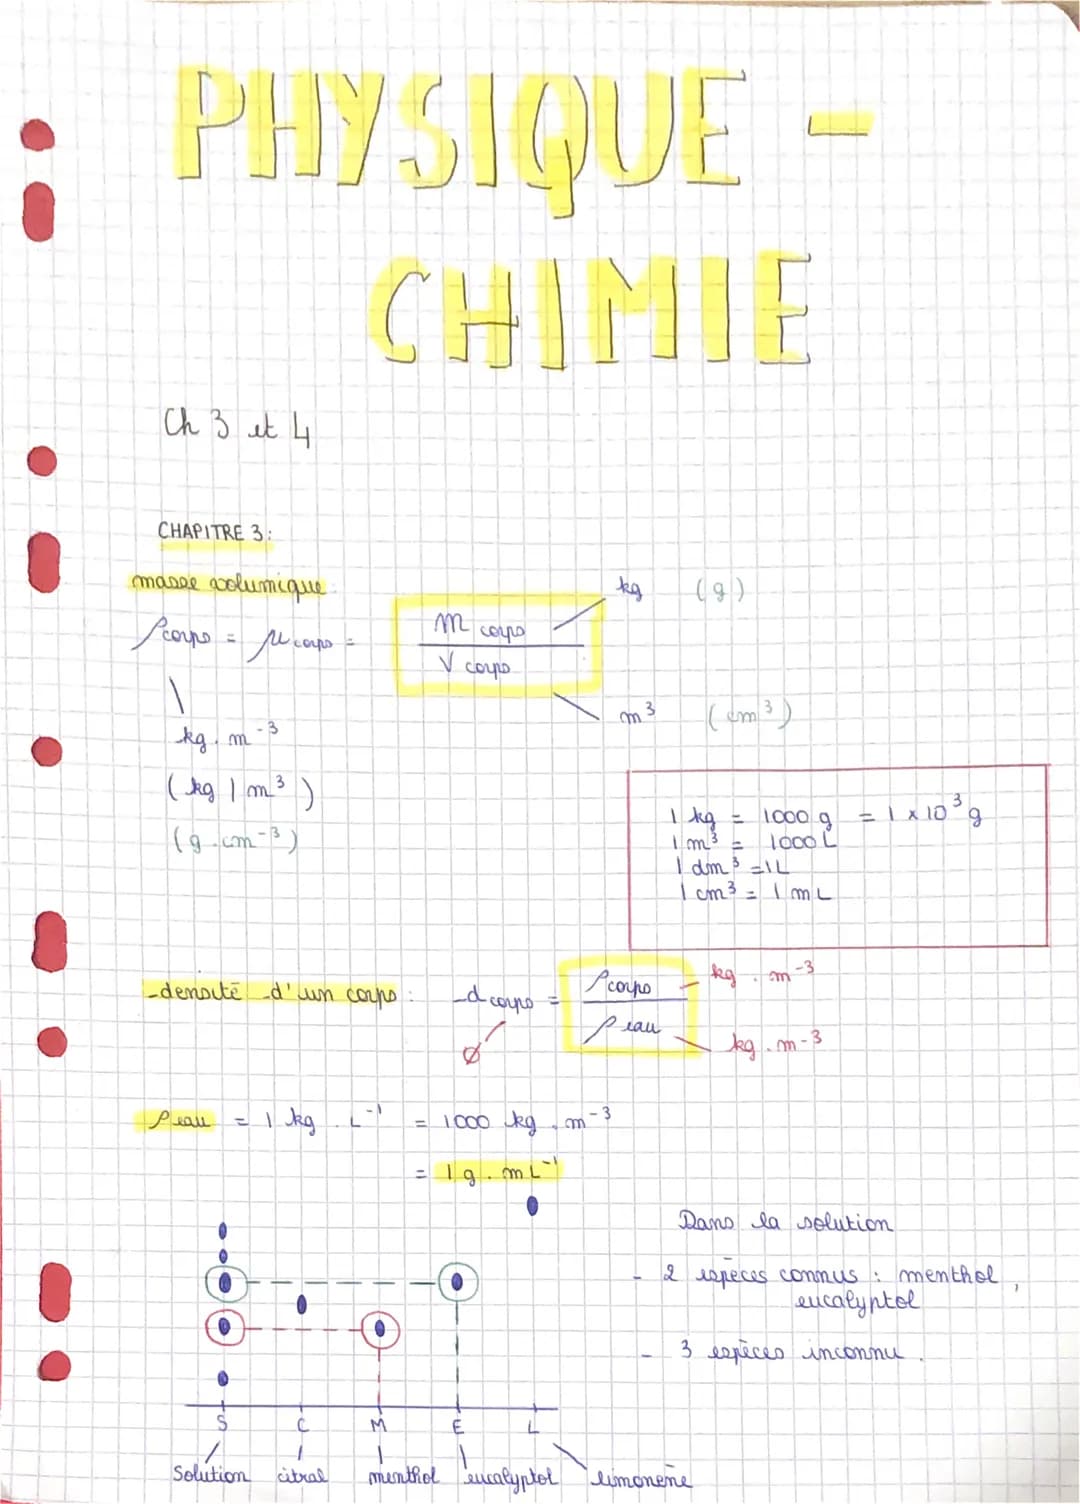 PHYSIQUE -
CHIMIE
Ch 3 et 4
CHAPITRE 3:
masse volumique
kg (g)
ρcorps = μcorps = m corps / V corps
kg . m⁻³
m³ (cm³)
(kg / m³)
(g . cm⁻³)
1 kg = 1000 g = 1 × 10³ g
1 m³ = 1000 L
1 dm³ = 1L
1 cm³ = 1 mL
densité d'un corps : d corps = ρcorps / ρ eau
kg . m⁻³
kg . m⁻³
Ø
ρ eau = 1 kg . L⁻¹ = 1000 kg . m⁻³
= 1 g . mL⁻¹
Dans la solution
- 2 espèces connus : menthol ,
eucalyptol
- 3 espèces inconnu .
S C M E L
Solution citral menthol eucalyptol limonène